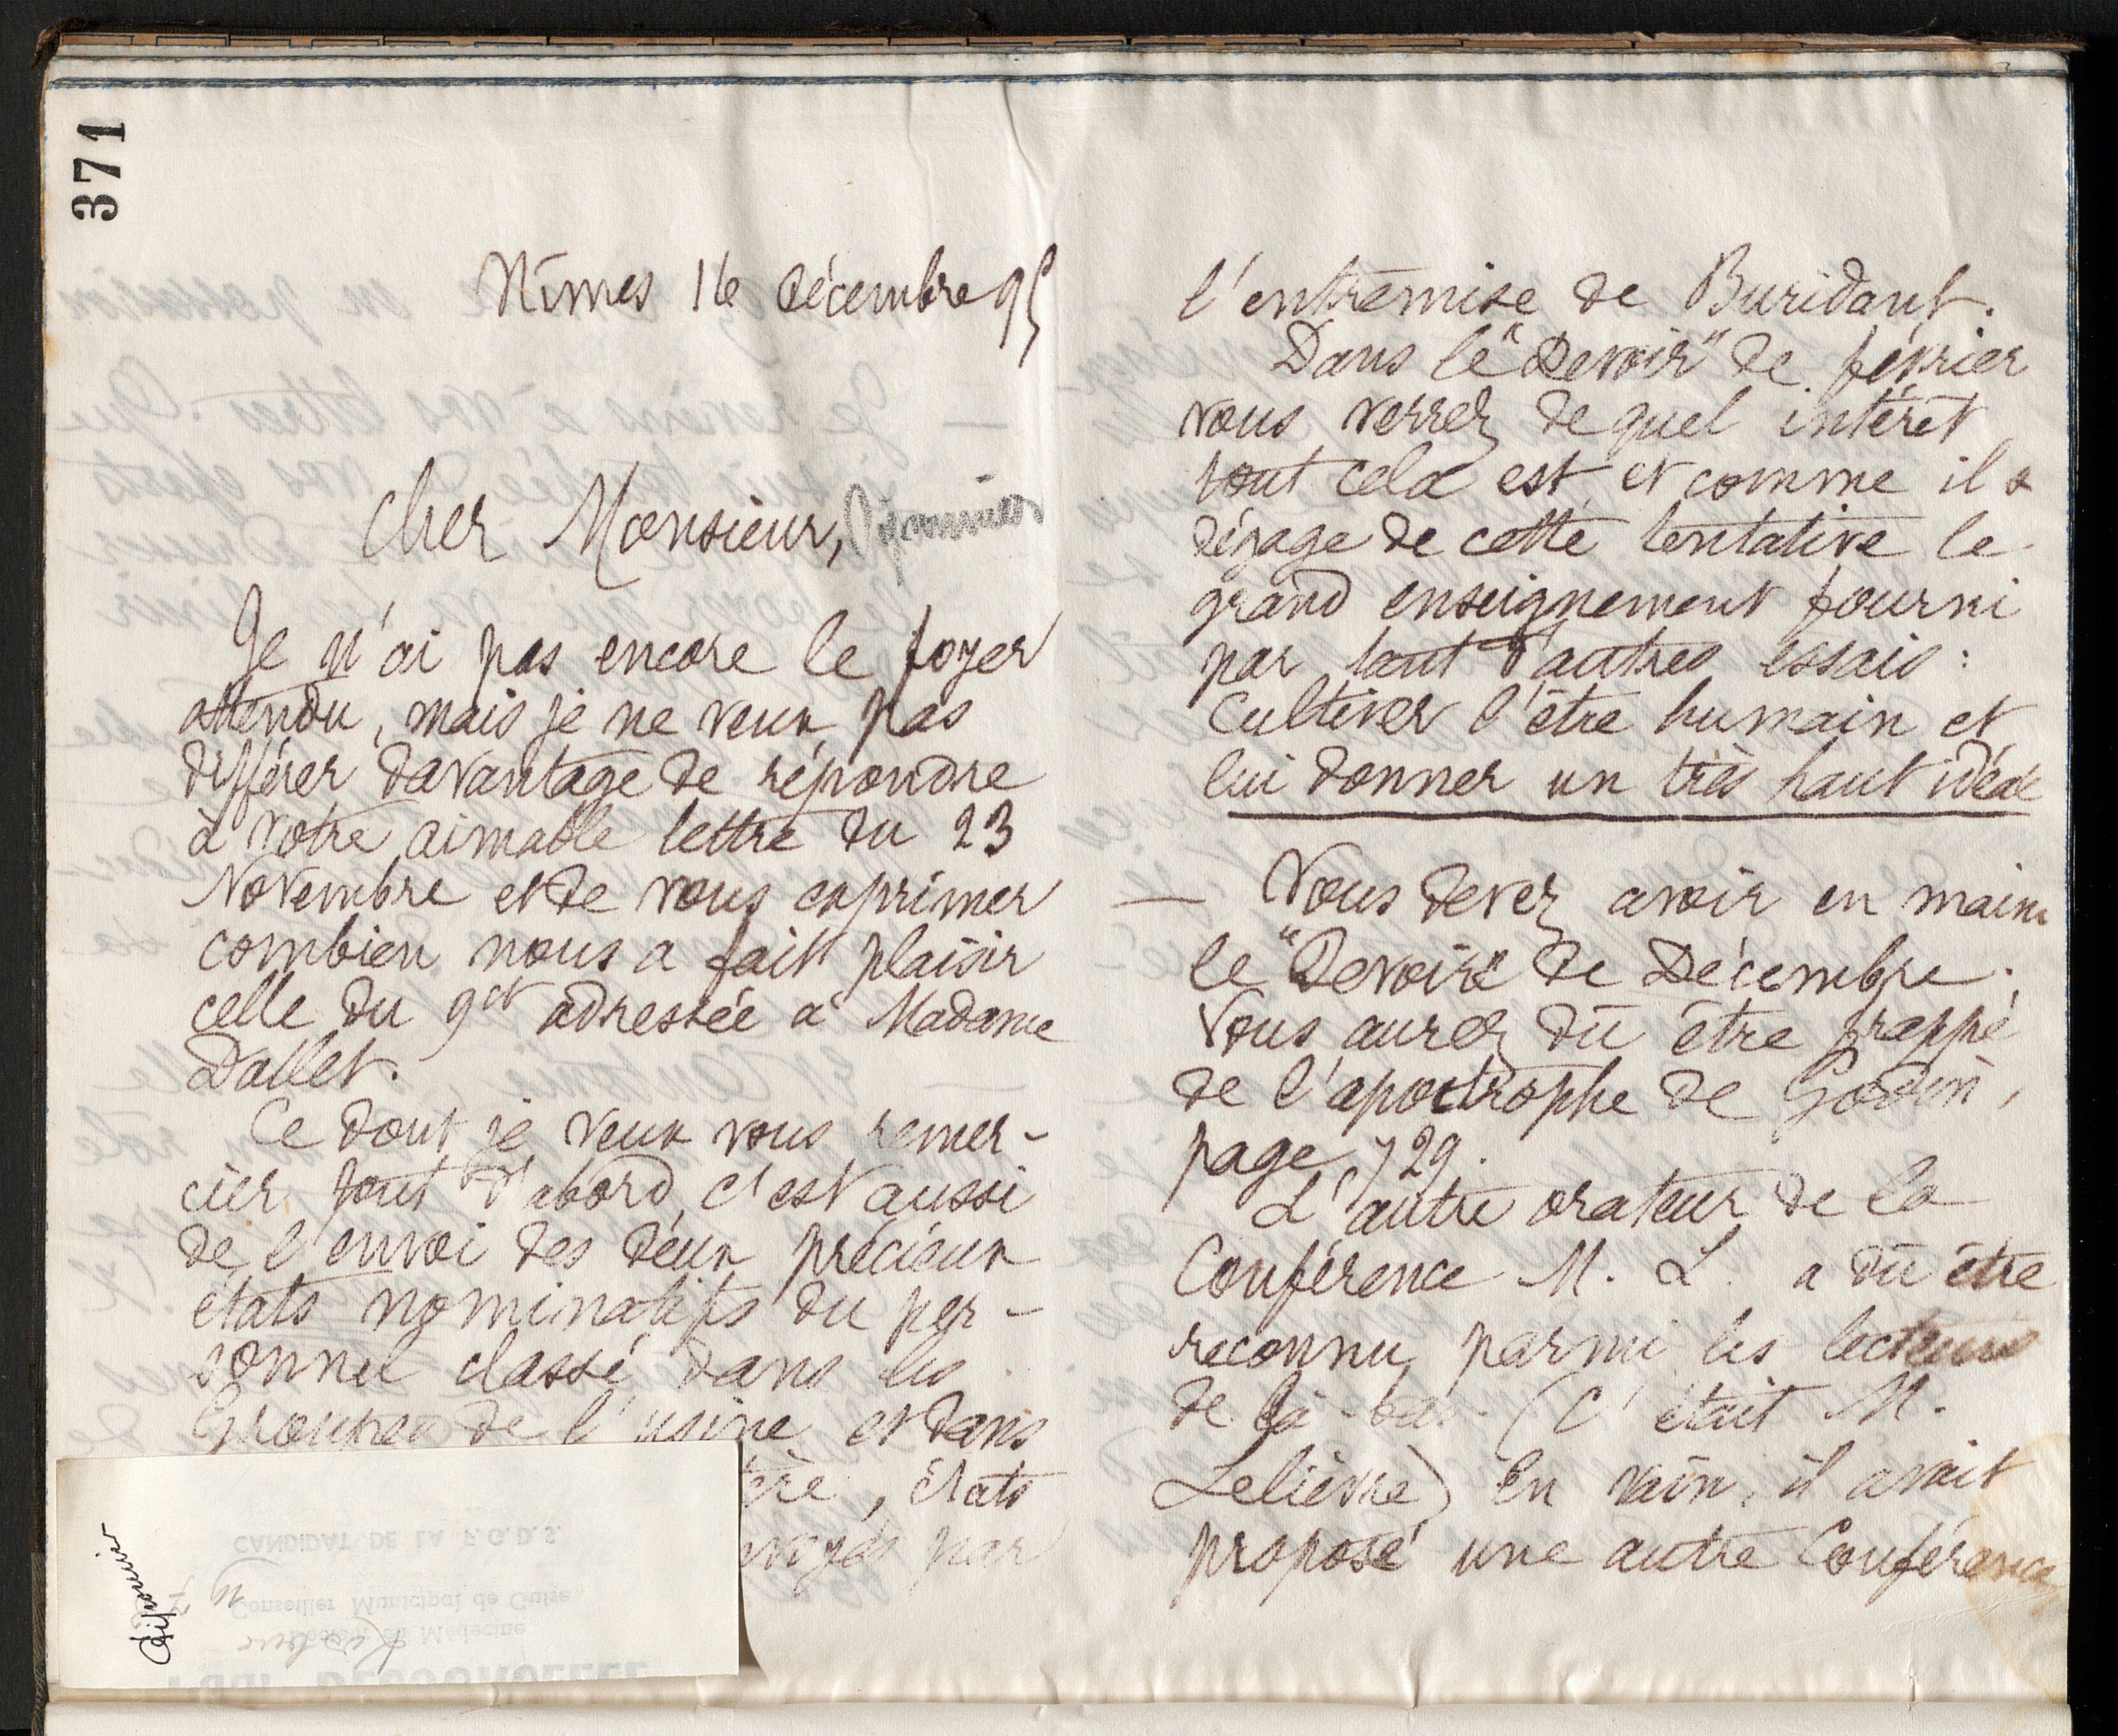 371
Nîmes 16 décembre 95
Cher Monsieur,
Je n'ai pas encore le foyer
attendu, mais je ne veux pas
différer davantage de répondre
à votre aimable lettre du 23
Novembre et de vous exprimer
combien nous a fait plaisir
celle du 9ct adressée à Madame
Dallet.
Ce dont je veux vous remer-
cier tout d'abord, c'est aussi
de l'envoi des deux précieux
états nominatifs du per-
sonnel classé dans les
Groupes de l'usine et dans
états
par
l'entremise de Buridant.
Dans le "Devoir" de février
vous verrez de quel intérêt
tout cela est et comme il se
dégage de cette tentative le
grand enseignement fourni
par tant d'autres essais :
Cultiver l'être humain et
lui donner un très haut idéal
— Vous devez avoir en mains
le "Devoir" de Décembre.
Vous aurez dû être frappé
de l'apostrophe de Godin,
page 729.
L'autre orateur de la
Conférence M. L. a dû être
reconnu parmi les lecteurs
de là-bas. (C'était M.
Lelièvre) En vain, il avait
proposé une autre Conférence
CANDIDAT DE LA F.G.D.S.
Conseiller Municipal de Guise
Médecine